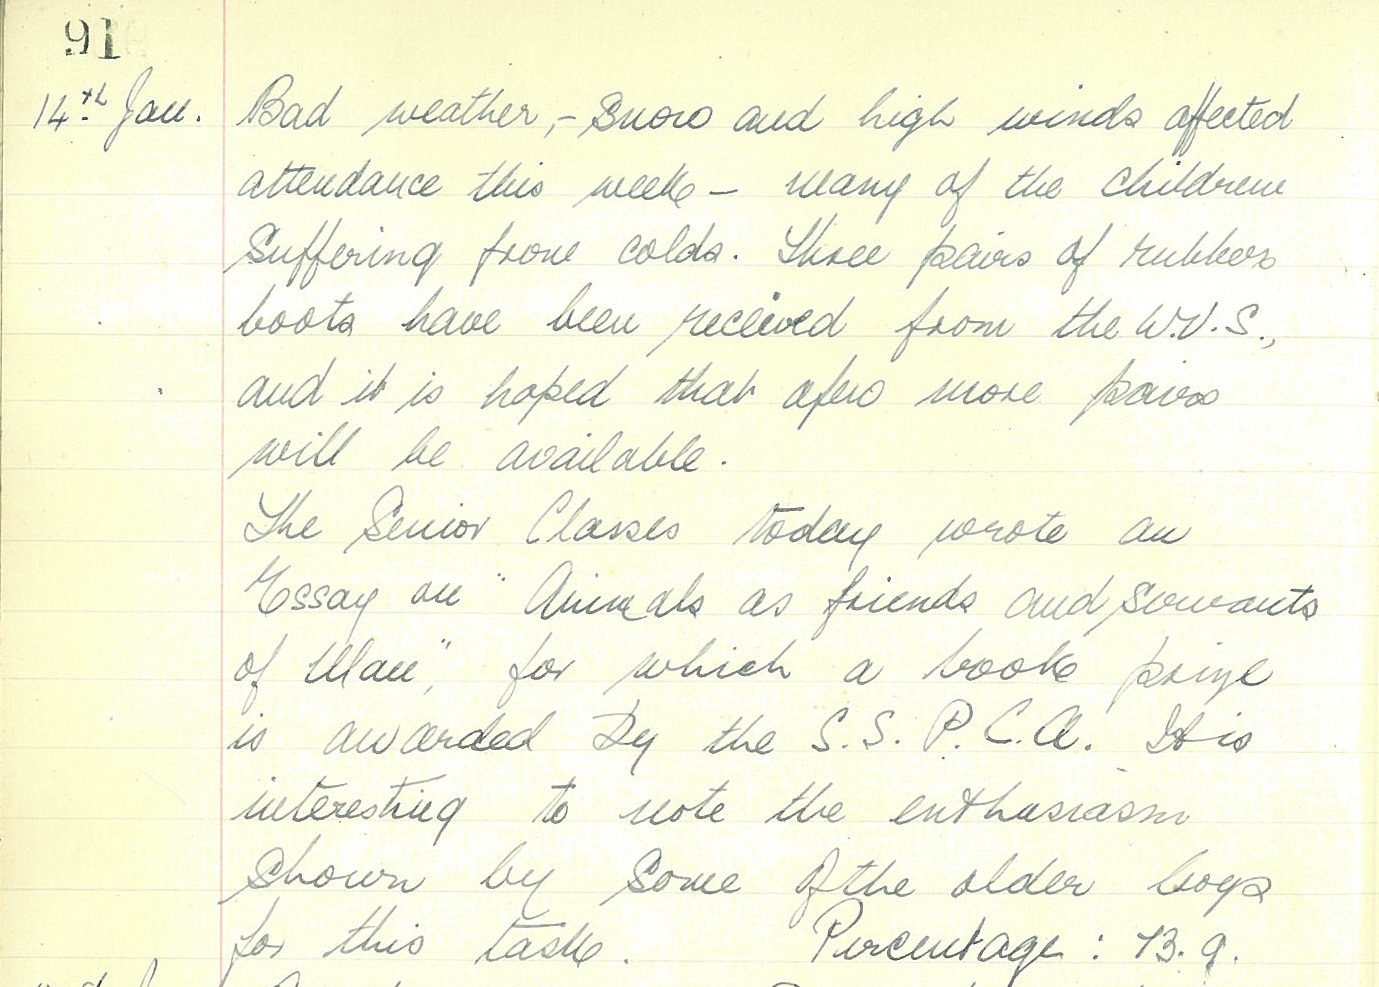 91
14th Jan. Bad weather,- Snow and high winds affected
attendance this week - many of the children
suffering from colds. Three pairs of rubber
boots have been received from the W.V.S.,
and it is hoped that a few more pairs
will be available.
The Senior Classes today wrote an
Essay on "Animals as friends and Servants
of Man", for which a book prize
is awarded by the S.S.P.C.A. It is
interesting to note the enthusiasm
shown by some of the older boys
for this task. Percentage: 73.9.